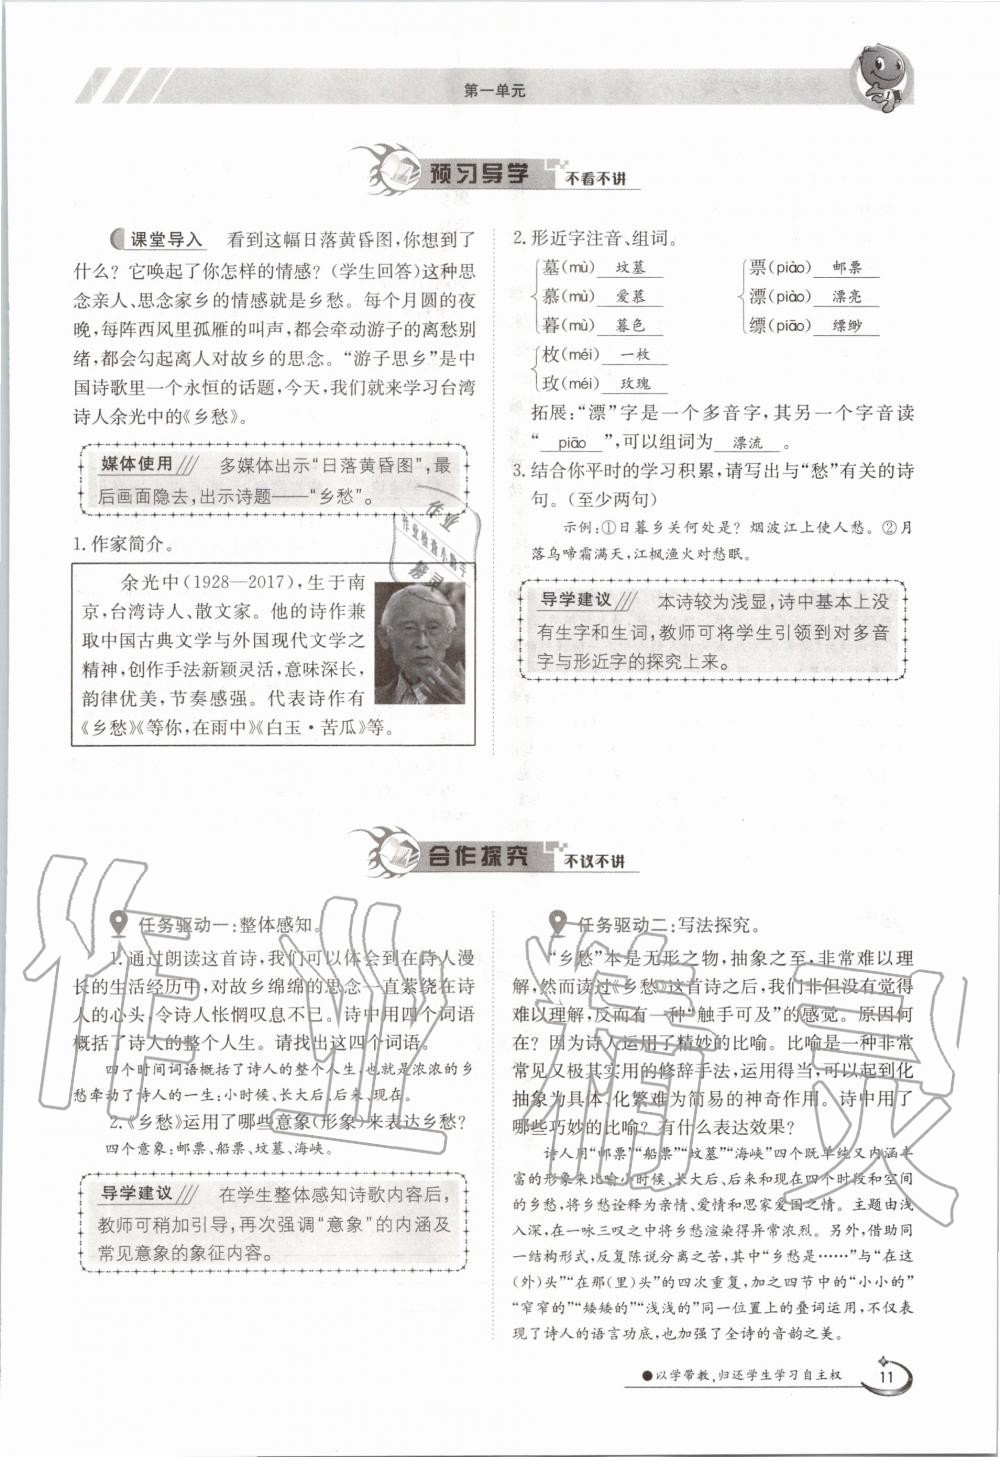 第一单元
预习导学 不看不讲
课堂导入 看到这幅日落黄昏图,你想到了
什么?它唤起了你怎样的情感?(学生回答)这种思
念亲人、思念家乡的情感就是乡愁。每个月圆的夜
晚,每阵西风里孤雁的叫声,都会牵动游子的离愁别
绪,都会勾起离人对故乡的思念。“游子思乡”是中
国诗歌里一个永恒的话题,今天,我们就来学习台湾
诗人余光中的《乡愁》。
媒体使用 多媒体出示“日落黄昏图”,最
后画面隐去,出示诗题——“乡愁”。
1.作家简介。
余光中(1928—2017),生于南
京,台湾诗人、散文家。他的诗作兼
取中国古典文学与外国现代文学之
精神,创作手法新颖灵活,意味深长,
韵律优美,节奏感强。代表诗作有
《乡愁》《等你,在雨中》《白玉·苦瓜》等。
2.形近字注音、组词。
墓(mù) 坟墓
慕(mù) 爱慕
暮(mù) 暮色
票(piào) 邮票
漂(piào) 漂亮
缥(piāo) 缥缈
枚(méi) 一枚
玫(méi) 玫瑰
拓展:“漂”字是一个多音字,其另一个字音读
“ piāo ”,可以组词为 漂流 。
3.结合你平时的学习积累,请写出与“愁”有关的诗
句。(至少两句)
示例:①日暮乡关何处是?烟波江上使人愁。②月
落乌啼霜满天,江枫渔火对愁眠。
导学建议 本诗较为浅显,诗中基本上没
有生字和生词,教师可将学生引领到对多音
字与形近字的探究上来。
合作探究 不议不讲
任务驱动一:整体感知。
1.通过朗读这首诗,我们可以体会到在诗人漫
长的生活经历中,对故乡绵绵的思念一直萦绕在诗
人的心头,令诗人怅惘叹息不已。诗中用四个词语
概括了诗人的整个人生。请找出这四个词语。
四个时间词语概括了诗人的整个人生,也就是浓浓的乡
愁牵动了诗人的一生:小时候、长大后、后来、现在。
2.《乡愁》运用了哪些意象(形象)来表达乡愁?
四个意象:邮票、船票、坟墓、海峡。
导学建议 在学生整体感知诗歌内容后,
教师可稍加引导,再次强调“意象”的内涵及
常见意象的象征内容。
任务驱动二:写法探究。
“乡愁”本是无形之物,抽象之至,非常难以理
解,然而读过《乡愁》这首诗之后,我们非但没有觉得
难以理解,反而有一种“触手可及”的感觉。原因何
在?因为诗人运用了精妙的比喻。比喻是一种非常
常见又极其实用的修辞手法,运用得当,可以起到化
抽象为具体、化繁难为简易的神奇作用。诗中用了
哪些巧妙的比喻?有什么表达效果?
诗人用“邮票”“船票”“坟墓”“海峡”四个既单纯又内涵丰
富的形象来比喻小时候、长大后、后来和现在四个时段和空间
的乡愁,将乡愁诠释为亲情、爱情和思家爱国之情。主题由浅
入深,在一咏三叹之中将乡愁渲染得异常浓烈。另外,借助同
一结构形式,反复陈说分离之苦,其中“乡愁是……”与“在这
(外)头”“在那(里)头”的四次重复,加之四节中的“小小的”
“窄窄的”“矮矮的”“浅浅的”同一位置上的叠词运用,不仅表
现了诗人的语言功底,也加强了全诗的音韵之美。
●以学带教,归还学生学习自主权 11
作业精灵